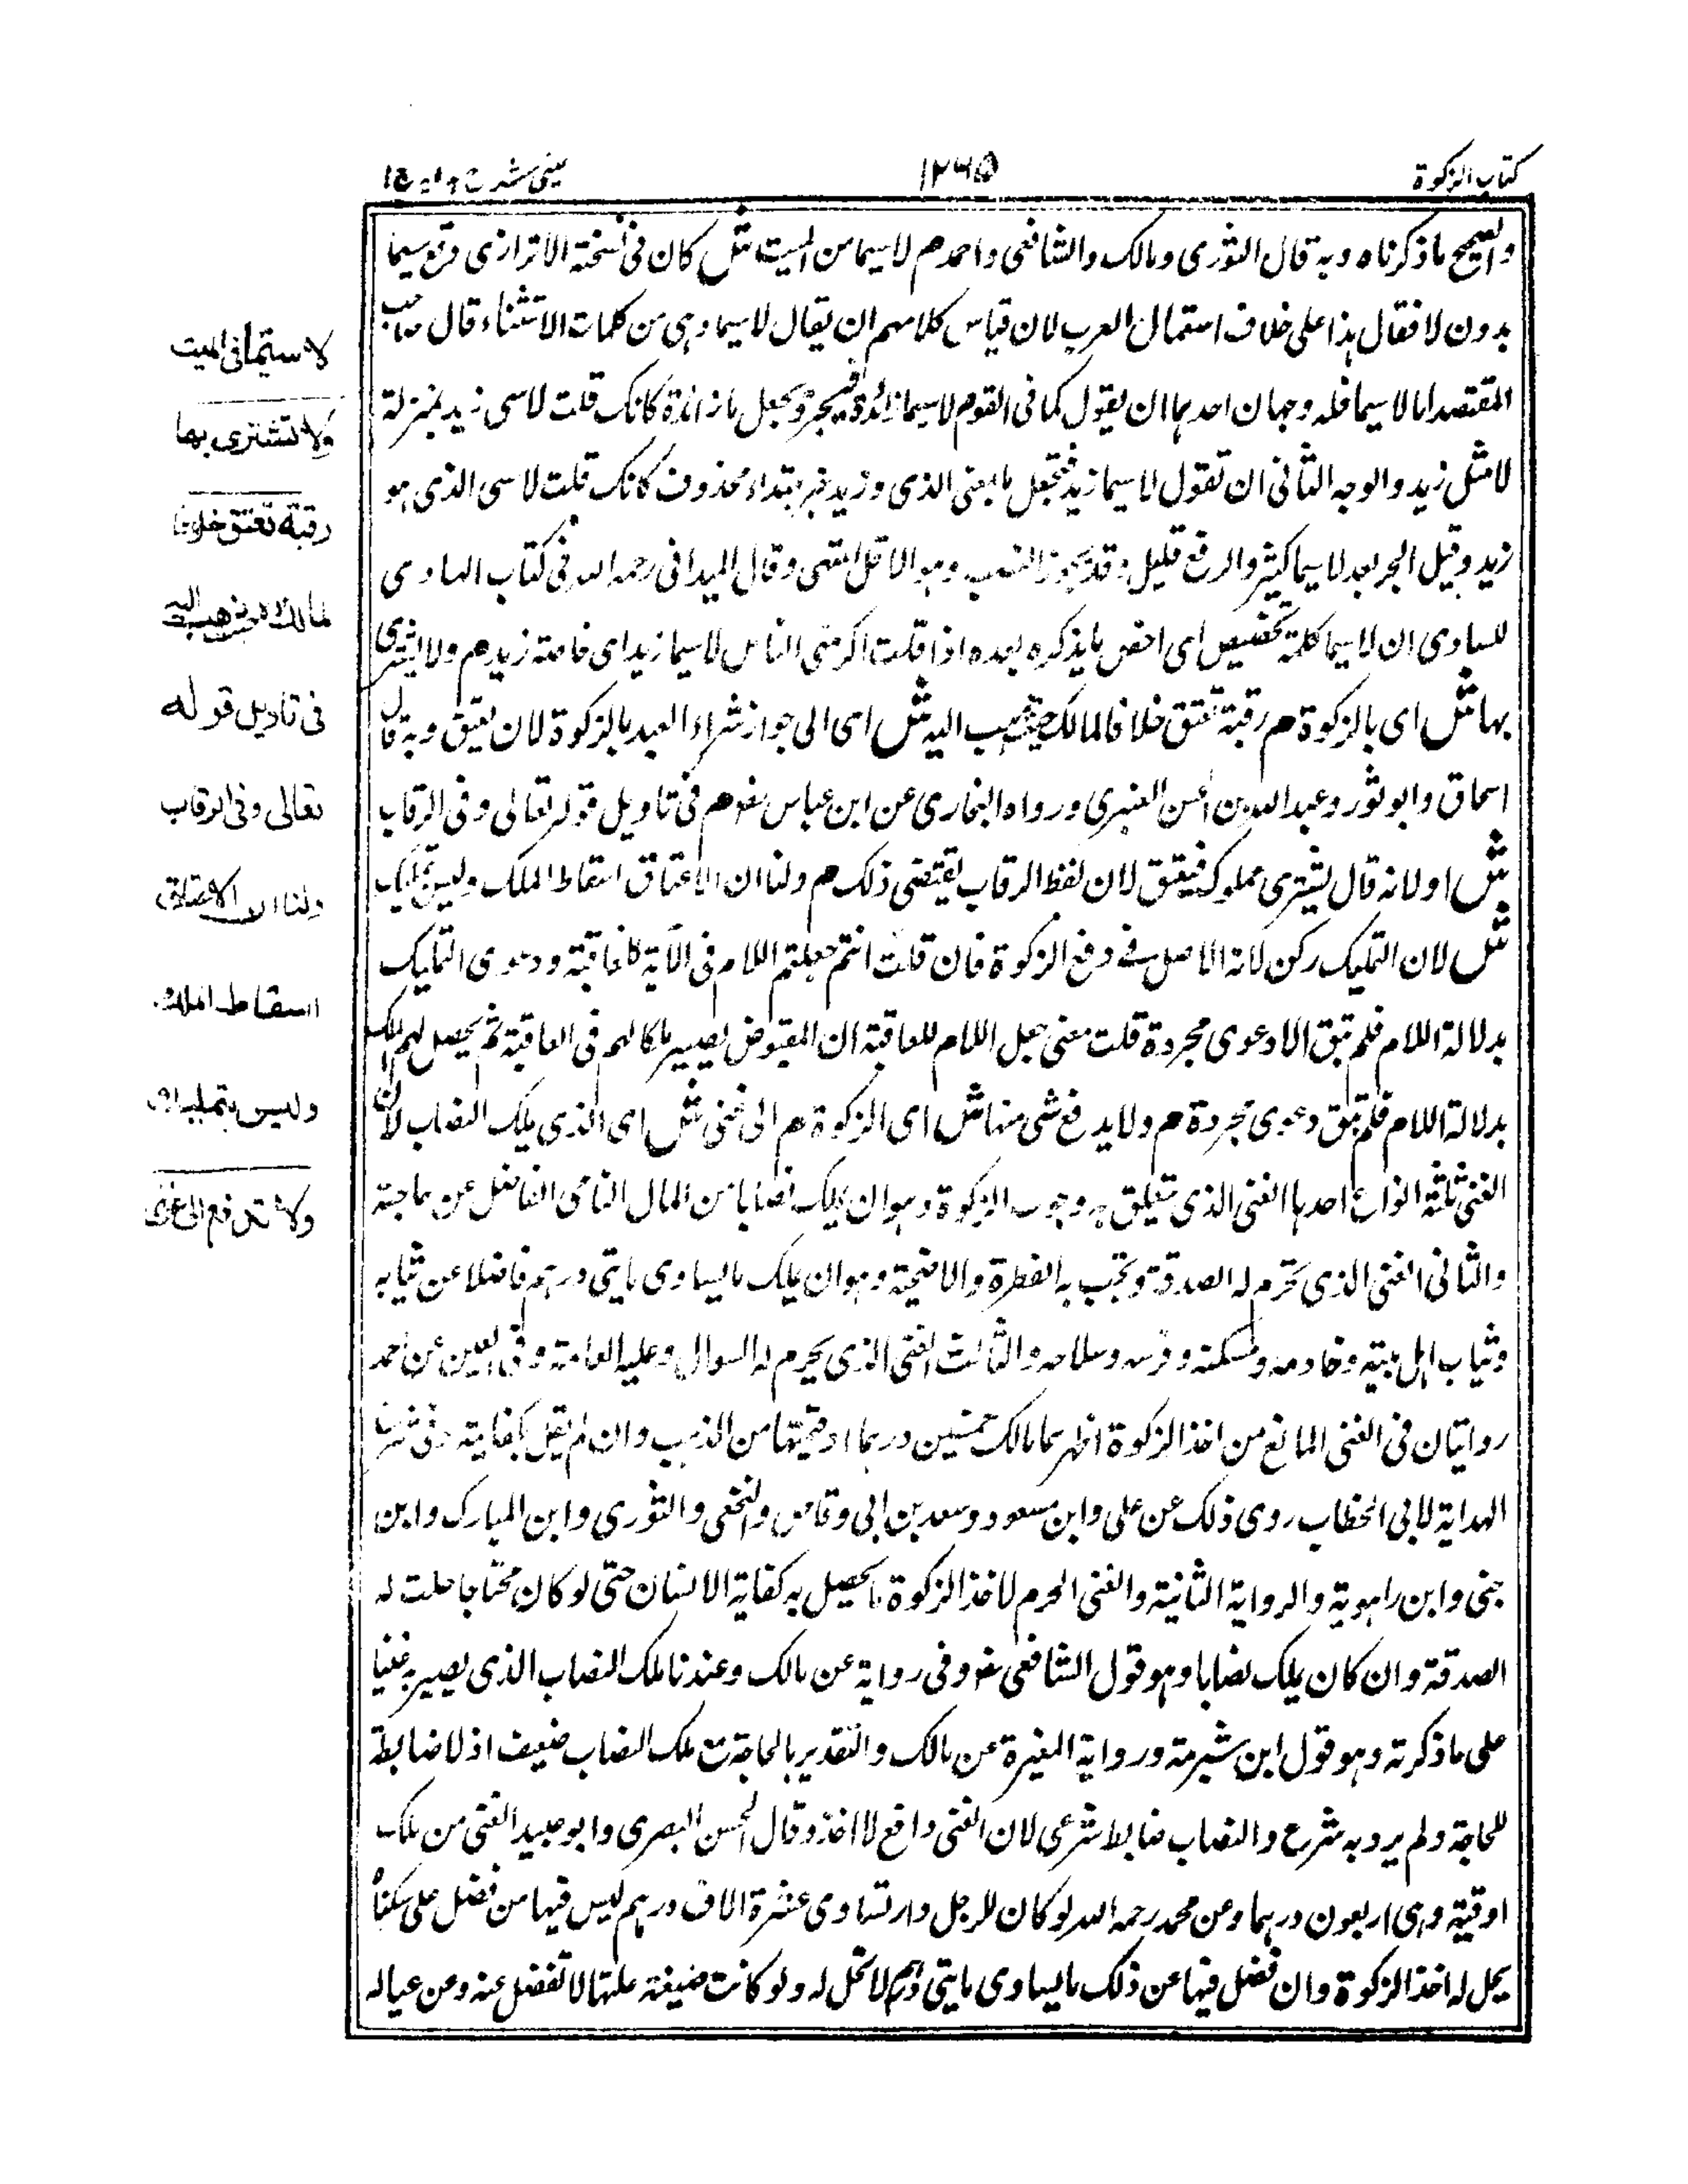 كتاب الزكوة
١٢٦٥
عينى شرح هدايه ج ا
والصحيح ماذكرناه وبه قال الثورى ومالك والشافعى واحمد م لاسيما من الميت ش كان فى نسخة الاترازى وقع سيما
بدون لا فقال هذا على خلاف استعمال العرب لان قياس كلامهم ان يقال لاسيما وهى من كلمات الاستثناء قال صاحب
المقتصد اما لاسيما فله وجهان احدهما ان يقول كما فى القوم لاسيما زيد فيجر ويجعل ما زائدة كانك قلت لاسى زيد بمنزلة
لامثل زيد والوجه الثانى ان تقول لاسيما زيد فتجعل ما بمعنى الذى وزيد خبر مبتداء محذوف كانك قلت لاسى الذى هو
زيد وقيل الجر بعد لاسيما كثير والرفع قليل وقد يجوز النصب وهو الاقل انتهى وقال الميدانى رحمه الله فى كتاب الهادى
للسادى ان لاسيما كلمة تخصيص اى اخص مايذكره بعده اذا قلت اكرمنى الناس لاسيما زيد اى خاصة زيد م ولا يشترى
بها ش اى بالزكوة م رقبة تعتق خلافا لمالك حيث ذهب اليه ش اى الى جواز شراء العبد بالزكوة لان يعتق وبه قال
اسحاق وابو ثور وعبد الله بن الحسن العنبرى ورواه البخارى عن ابن عباس رضه م فى تاويل قوله تعالى وفى الرقاب
ش اولانه قال يشترى مملوك فيعتق لان لفظ الرقاب يقتضى ذلك م ولنا ان الاعتاق اسقاط الملك وليس بتمليك
ش لان التمليك ركن لانه الاصل فى دفع الزكوة فان قلت انتم جعلتم اللام فى الآية للعاقبة ودعوى التمليك
بدلالة اللام فلم تبق الا دعوى مجردة قلت معنى جعل اللام للعاقبة ان المقبوض يصير ملكا لهم فى العاقبة ثم يحصل لهم الملك
بدلالة اللام فلم تبق دعوى مجردة م ولا يدفع شى منها ش اى الزكوة م الى غنى ش اى الذى يملك النصاب لان
الغنى ثلثة انواع احدها الغنى الذى يتعلق به وجوب الزكوة وهو ان يملك نصابا من المال النامى الفاضل عن حاجته
والثانى الغنى الذى تحرم له الصدقة وتجب به الفطرة والاضحية وهو ان يملك مايساوى مايتى درهم فاضلا عن ثيابه
وثياب اهل بيته وخادمه ومسكنه وفرسه وسلاحه والثالث الغنى الذى يحرم له السوال وعليه العامة وفى العين عن احمد
روايتان فى الغنى المانع من اخذ الزكوة اظهرهما مالك خمسين درهما اوقيمتها من الذهب وان لم يقل بكفايته وفى شرح
الهداية لابى الخطاب روى ذلك عن على وابن مسعود وسعد بن ابى وقاص والنخعى والثورى وابن المبارك وابن
جنى وابن راهوية والرواية الثانية والغنى المحرم لاخذ الزكوة مايحصل به كفاية الانسان حتى لو كان محتاجا حلت له
الصدقة وان كان يملك نصابا وهو قول الشافعى رضه وفى رواية عن مالك وعندنا ملك النصاب الذى يصير به غنيا
على ماذكرته وهو قول ابن شبرمة ورواية المغيرة عن مالك والتقدير بالحاجة مع ملك النصاب ضعيف اذ لا ضابطة
للحاجة ولم يرد به شرع والنصاب ضابط شرعى لان الغنى دافع لا اخذ وقال الحسن البصرى وابو عبيد الغنى من ملك
اوقية وهى اربعون درهما وعن محمد رحمه الله لو كان للرجل دار تساوى عشرة الاف درهم ليس فيها من فضل على سكناه
يحل له اخذ الزكوة وان فضل فيها عن ذلك مايساوى مايتى درهم لا تحل له ولو كانت ضيعة غلتها لا تفضل عنه وعن عياله
لا سيّما فى الميت
ولا تشترى بها
رقبة تعتق خلافا
لمالك ره حيث ذهب اليه
فى تاويل قوله
تعالى وفى الرقاب
ولنا ان الاعتاق
اسقاط الملك
وليس بتمليك
ولا تدفع الى غنى